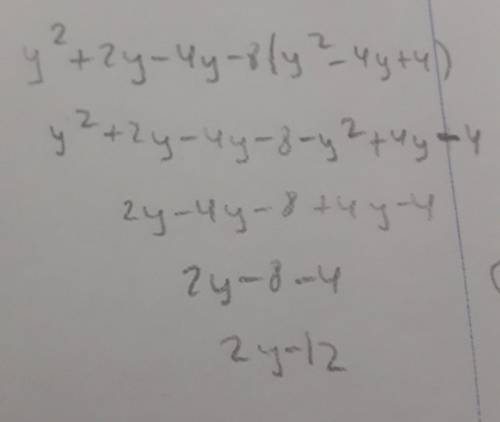 y² + 2y - 4y - 8(y² - 4y + 4)
y² + 2y - 4y - 8 - y² + 4y - 4
2y - 4y - 8 + 4y - 4
2y - 8 - 4
2y - 12